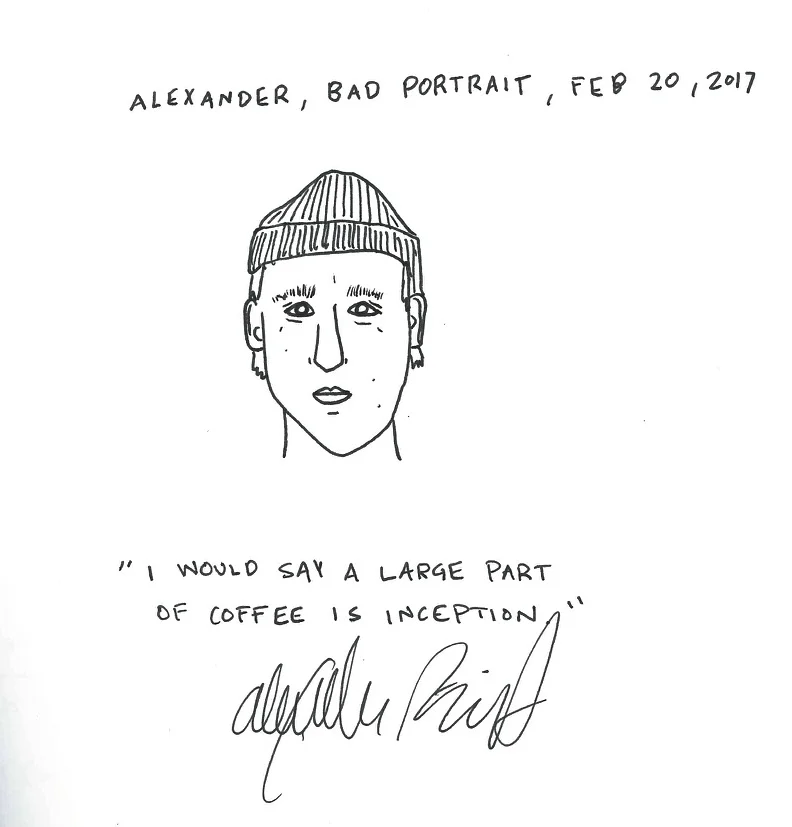 ALEXANDER, BAD PORTRAIT, FEB 20, 2017
"I WOULD SAY A LARGE PART
OF COFFEE IS INCEPTION."
alexander